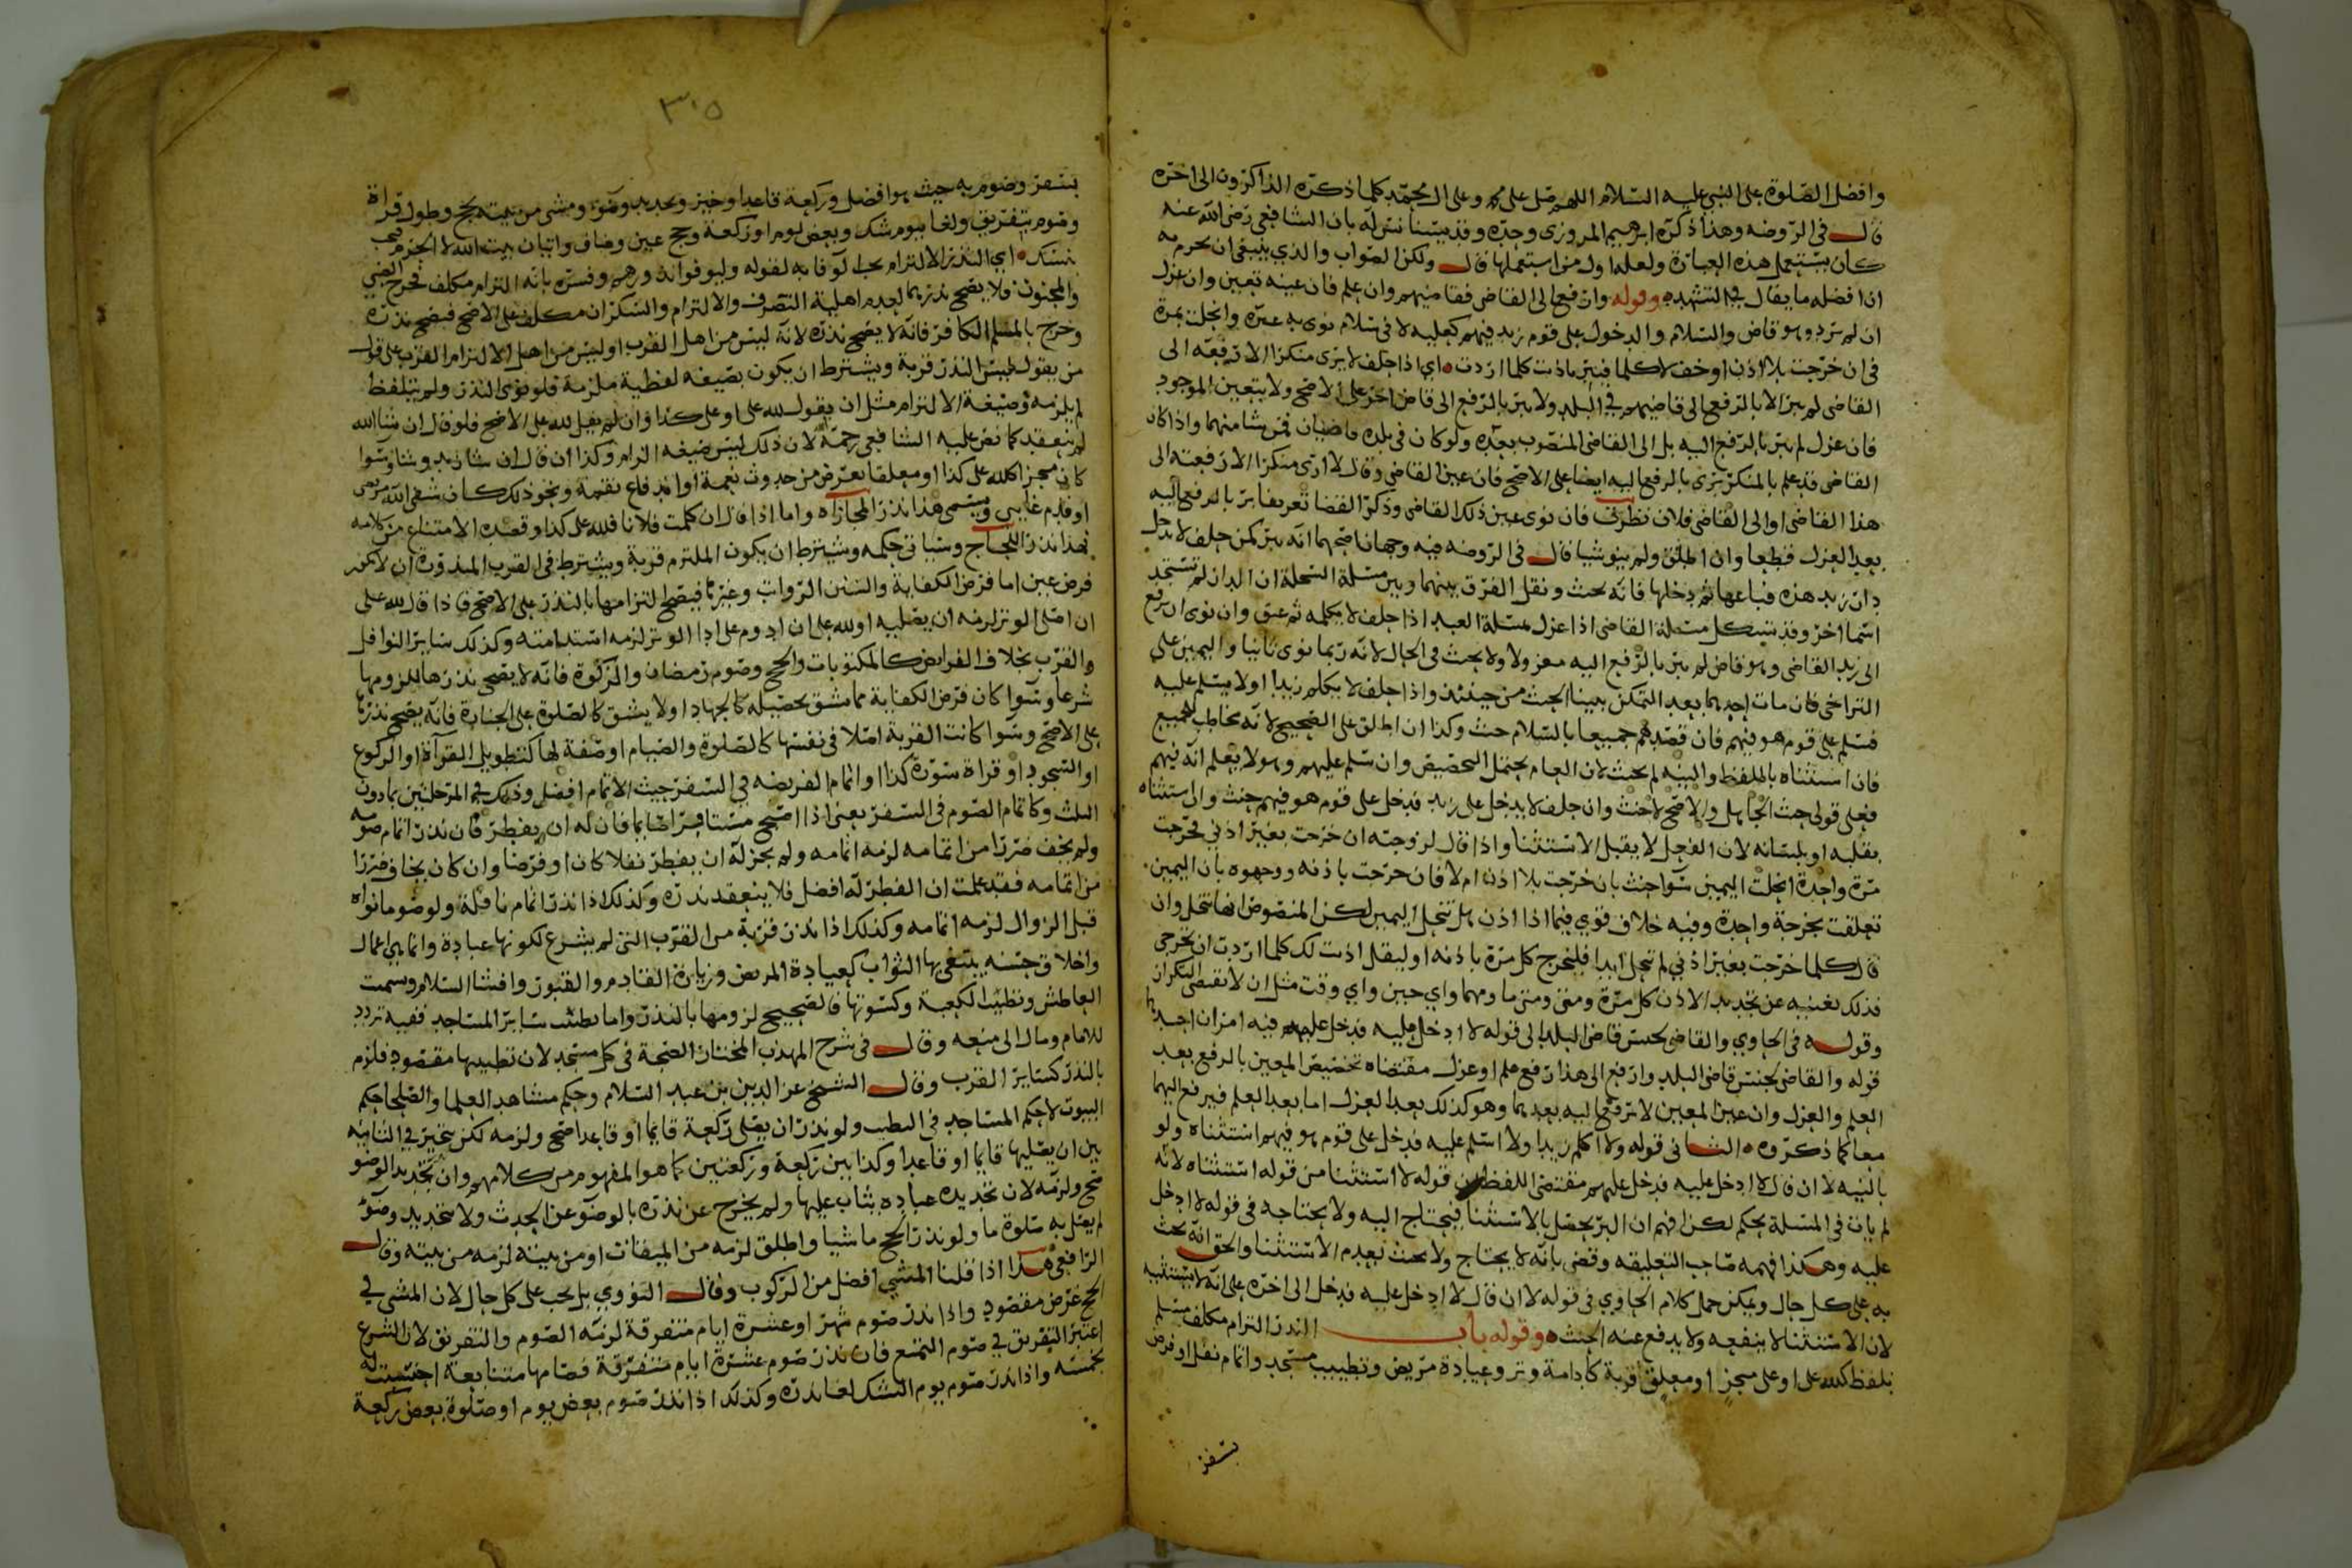 وافضل الصلوة على النبي عليه السلام اللهم صل على محمد وعلى ال محمد كلما ذكره الذاكرون الى اخره
قال في الروضه وهذا ذكره ابرهيم المروزي وحده وقد يستانس له بان الشافعي رضي الله عنه
كان يستعمل هذه العبارة ولعله اول من استعملها قال ولكن الصواب والذي ينبغي ان يجزم به
ان افضله ما يقال في التشهد وقوله وارفع الى القاضي فقاضيهم وان علم فان عينه تعين وان عزل
ان لم يرد وهو قاض والسلام والدخول على قوم زيد فيهم كعليه لا في سلام نوى به غيره وانحلت بمرة
في ان خرجت بلا اذن او خف لا كلما فيبر باذنت كلما اردت اي اذا حلف لا يرى منكرا الا رفعه الى
القاضي لم يبر الا بالرفع الى قاضيهم في البلد ولا يبر بالرفع الى قاض اخر على الاصح ولا يتعين الموجود
فان عزل لم يبر بالرفع اليه بل الى القاضي المنصوب بعده ولو كان في بلده قاضيان فمن شا منهما واذا كان
القاضي قد علم بالمنكر يرى بالرفع اليه ايضا على الاصح فان عين القاضي وقال لا ارى منكرا الا رفعته الى
هذا القاضي او الى القاضي فلان نظرت فان نوى عين ذلك القاضي وذكر القضا تعريفا بر بالرفع اليه
بعد العزل قطعا وان اطلق ولم ينو شيا قال في الروضه فيه وجهان اصحهما انه يبر كمن حلف لا يدخل
دار زيد هذه فباعها ثم دخلها فانه يحنث ونقل الفرق بينهما وبين مسئلة السخلة ان الدار لم تستجد
اسما اخر وقد يشكل مسئلة القاضي اذا عزل بمسئلة العبد اذا حلف لا يكلمه ثم عتق وان نوى ان يرفع
الى زيد القاضي وهو قاض لم يبر بالرفع اليه معزولا ولا يحنث في الحال لانه ربما نوى ثانيا واليمين على
التراخي فان مات احدهما بعد التمكن بينا الحنث من حينئذ واذا حلف لا يكلم زيدا او لا يسلم عليه
فسلم على قوم هو فيهم فان قصدهم جميعا بالسلام حنث وكذا ان اطلق على الصحيح لانه يخاطب الجميع
فان استثناه بالملفظ والنيه لم يحنث لان العام يحتمل التخصيص وان سلم عليهم وهو لا يعلم انه فيهم
فعلى قولي حنث الجاهل والاصح لا حنث وان حلف لا يدخل على زيد فدخل على قوم هو فيهم حنث وان استثناه
بقلبه او بلسانه لان الفعل لا يقبل الاستثنا واذا قال لزوجته ان خرجت بغير اذني فخرجت
مرة واحدة انحلت اليمين سوا حنث بان خرجت بلا اذن ام لا فان خرجت باذنه ووجهوه بان اليمين
تعلقت بخرجة واحدة وفيه خلاف قوي فيما اذا اذن هل تنحل اليمين لكن المنصوص انها تنحل وان
قال كلما خرجت بغير اذني لم تنحل ابدا فلتخرج كل مرة باذنه او ليقل اذنت لك كلما اردت ان تخرجي
فذلك يغنيه عن تجديد الاذن كل مرة ومتى ومتى ما ومهما واي حين واي وقت مثل ان لا تقتضي التكرار
وقوله في الحاوي والقاضي بجنس قاضي البلد الى قوله لا ادخل عليه فدخل عليهم فيه امران احدهما
قوله والقاضي بجنس قاضي البلد وارفع الى هذا رفع علم او عزل مقتضاه تخصيص المعين بالرفع بعد
العلم والعزل وان عين المعين لا يرفع اليه بعدهما وهو كذلك بعد العزل اما بعد العلم فيرفع اليهما
معا كما ذكروه الثاني قوله ولا اكلم زيدا ولا اسلم عليه فدخل على قوم هو فيهم استثناه ولو
بالنيه لا ان قال لا ادخل عليه فدخل عليهم مقتضى اللفظ ان قوله لا استثنا من قوله استثناه لانه
لم يات في المسئلة بحكم لكن افهم ان البر يحصل بالاستثنا فيحتاج اليه ولا يحتاجه في قوله لا ادخل
عليه وهكذا فهمه صاحب التعليقه وقضى بانه لا يحتاج ولا يحنث بعدم الاستثنا والحق انه يحنث
به على كل حال ويمكن حمل كلام الحاوي في قوله لا ان قال لا ادخل عليه فدخل الى اخره على انه لا يستثنيه
لان الاستثنا لا ينفعه ولا يدفع عنه الحنث وقوله باب النذر التزام مكلف مسلم
بلفظ كلله علي او علي منجز او معلق قربة كادامة وتر وعيادة مريض وتطييب مسجد واتمام نفل او فرض
بسفر
٣٠٥
بسفر وصوم به حيث هو افضل وركعة قاعدا وخير وتجديد وضو ومشي من بيته بحج وطول قراة
وصوم بتفريق ولغا بيوم شك وبعض يوم او ركعة وحج عين وضاف واتيان بيت الله لا الحرم فيجب
بنسك اي النذر الالتزام يجب الوفا به لقوله وليوفوا نذورهم وفسره بانه التزام مكلف فخرج الصبي
والمجنون فلا يصح نذرهما لعدم اهلية التصرف والالتزام والسكران مكلف على الاصح فيصح نذره
وخرج بالمسلم الكافر فانه لا يصح نذره لانه ليس من اهل القرب او ليس من اهل الالتزام القرب على قول
من يقول ليس النذر قربة ويشترط ان يكون بصيغه لفظية ملزمة فلو نوى النذر ولم يتلفظ
لم يلزمه وصيغة الالتزام مثل ان يقول لله علي او علي كذا وان لم يقل لله على الاصح فلو قال ان شا الله
لم ينعقد كما نص عليه الشافعي رحمه لان ذلك ليس صيغه الزام وكذا ان قال ان شا زيد وشا وسوا
كان منجزا كلله علي كذا او معلقا بعرض من حدوث نعمة او اندفاع نقمة ونحو ذلك كان شفى الله مريضي
او قدم غايبي ويسمى هذا نذر المجازاه واما اذا قال ان كلمت فلانا فلله علي كذا وقصده الامتناع من كلامه
فهذا نذر اللجاج وسياتي حكمه ويشترط ان يكون الملتزم قربة ويشترط في القرب المنذورة ان لا تكون
فرض عين اما فرض الكفاية والسنن الرواتب وغيرها فيصح التزامها بالنذر على الاصح فاذا قال لله علي
ان اصلي الوتر لزمه ان يصليه او لله علي ان ادوم على ادا الوتر لزمه استدامته وكذلك ساير النوافل
والقرب بخلاف الفرايض كالمكتوبات والحج وصوم رمضان والزكوة فانه لا يصح نذرها للزومها
شرعا وسوا كان فرض الكفاية مما يشق تحصيله كالجهاد او لا يشق كالصلوة على الجنازة فانه يصح نذرها
على الاصح وسوا كانت القربة اصلا في نفسها كالصلوة والصيام او صفة لها كتطويل القرآة او الركوع
او السجود او قراة سورة كذا او اتمام الفريضه في السفر حيث الاتمام افضل وذلك في المرحلتين بما دون
الثلث وكاتمام الصوم في السفر يعني اذا اصبح مسافرا صايما فان له ان يفطر فان نذر اتمام صومه
ولم يخف ضررا من اتمامه لزمه اتمامه ولم يجز له ان يفطر نفلا كان او فرضا وان كان يخاف ضررا
من اتمامه فقد علمت ان الفطر له افضل فلا ينعقد نذره وكذلك اذا نذر اتمام نافلة ولو صوما نواه
قبل الزوال لزمه اتمامه وكذلك اذا نذر قربة من القرب التي لم يشرع لكونها عبادة وانما هي اعمال
واخلاق حسنه يبتغى بها الثواب كعيادة المريض وزيارة القادم والقبور وافشا السلام وتسميت
العاطس وتطييب الكعبة وكسوتها فالصحيح لزومها بالنذر واما تطييب ساير المساجد ففيه تردد
للامام ومال الى منعه وقال في شرح المهذب المختار الصحة في كل مسجد لان تطييبها مقصود فلزم
بالنذر كساير القرب وقال الشيخ عز الدين بن عبد السلام وحكم مشاهد العلما والصلحا حكم
البيوت لا حكم المساجد في التطيب ولو نذر ان يصلي ركعة قايما او قاعدا صح ولزمه لكن يتخير في الثانيه
بين ان يصليها قايما او قاعدا وكذا بين ركعة وركعتين كما هو المفهوم من كلامهم وان نذر تجديد الوضو
صح ولزمه لان تجديده عباده يثاب عليها ولم يخرج عن نذره بالوضو عن الحدث ولا بتجديد وضو
لم يصل به صلوة ما ولو نذر الحج ماشيا واطلق لزمه من الميقات او من بيته لزمه من بيته وقال
الرافعي هكذا اذا قلنا المشي افضل من الركوب وقال النووي بل يجب على كل حال لان المشي في
الحج غرض مقصود واذا نذر صوم شهر او عشرة ايام متفرقة لزمه الصوم والتفريق لان الشرع
اعتبر التفريق في صوم التمتع فان نذر صوم عشرة ايام متفرقة فصامها متتابعة احتسبت له
بخمسه واذا نذر صوم يوم الشك لغا نذره وكذلك اذا نذر صوم بعض يوم او صلوة بعض ركعة